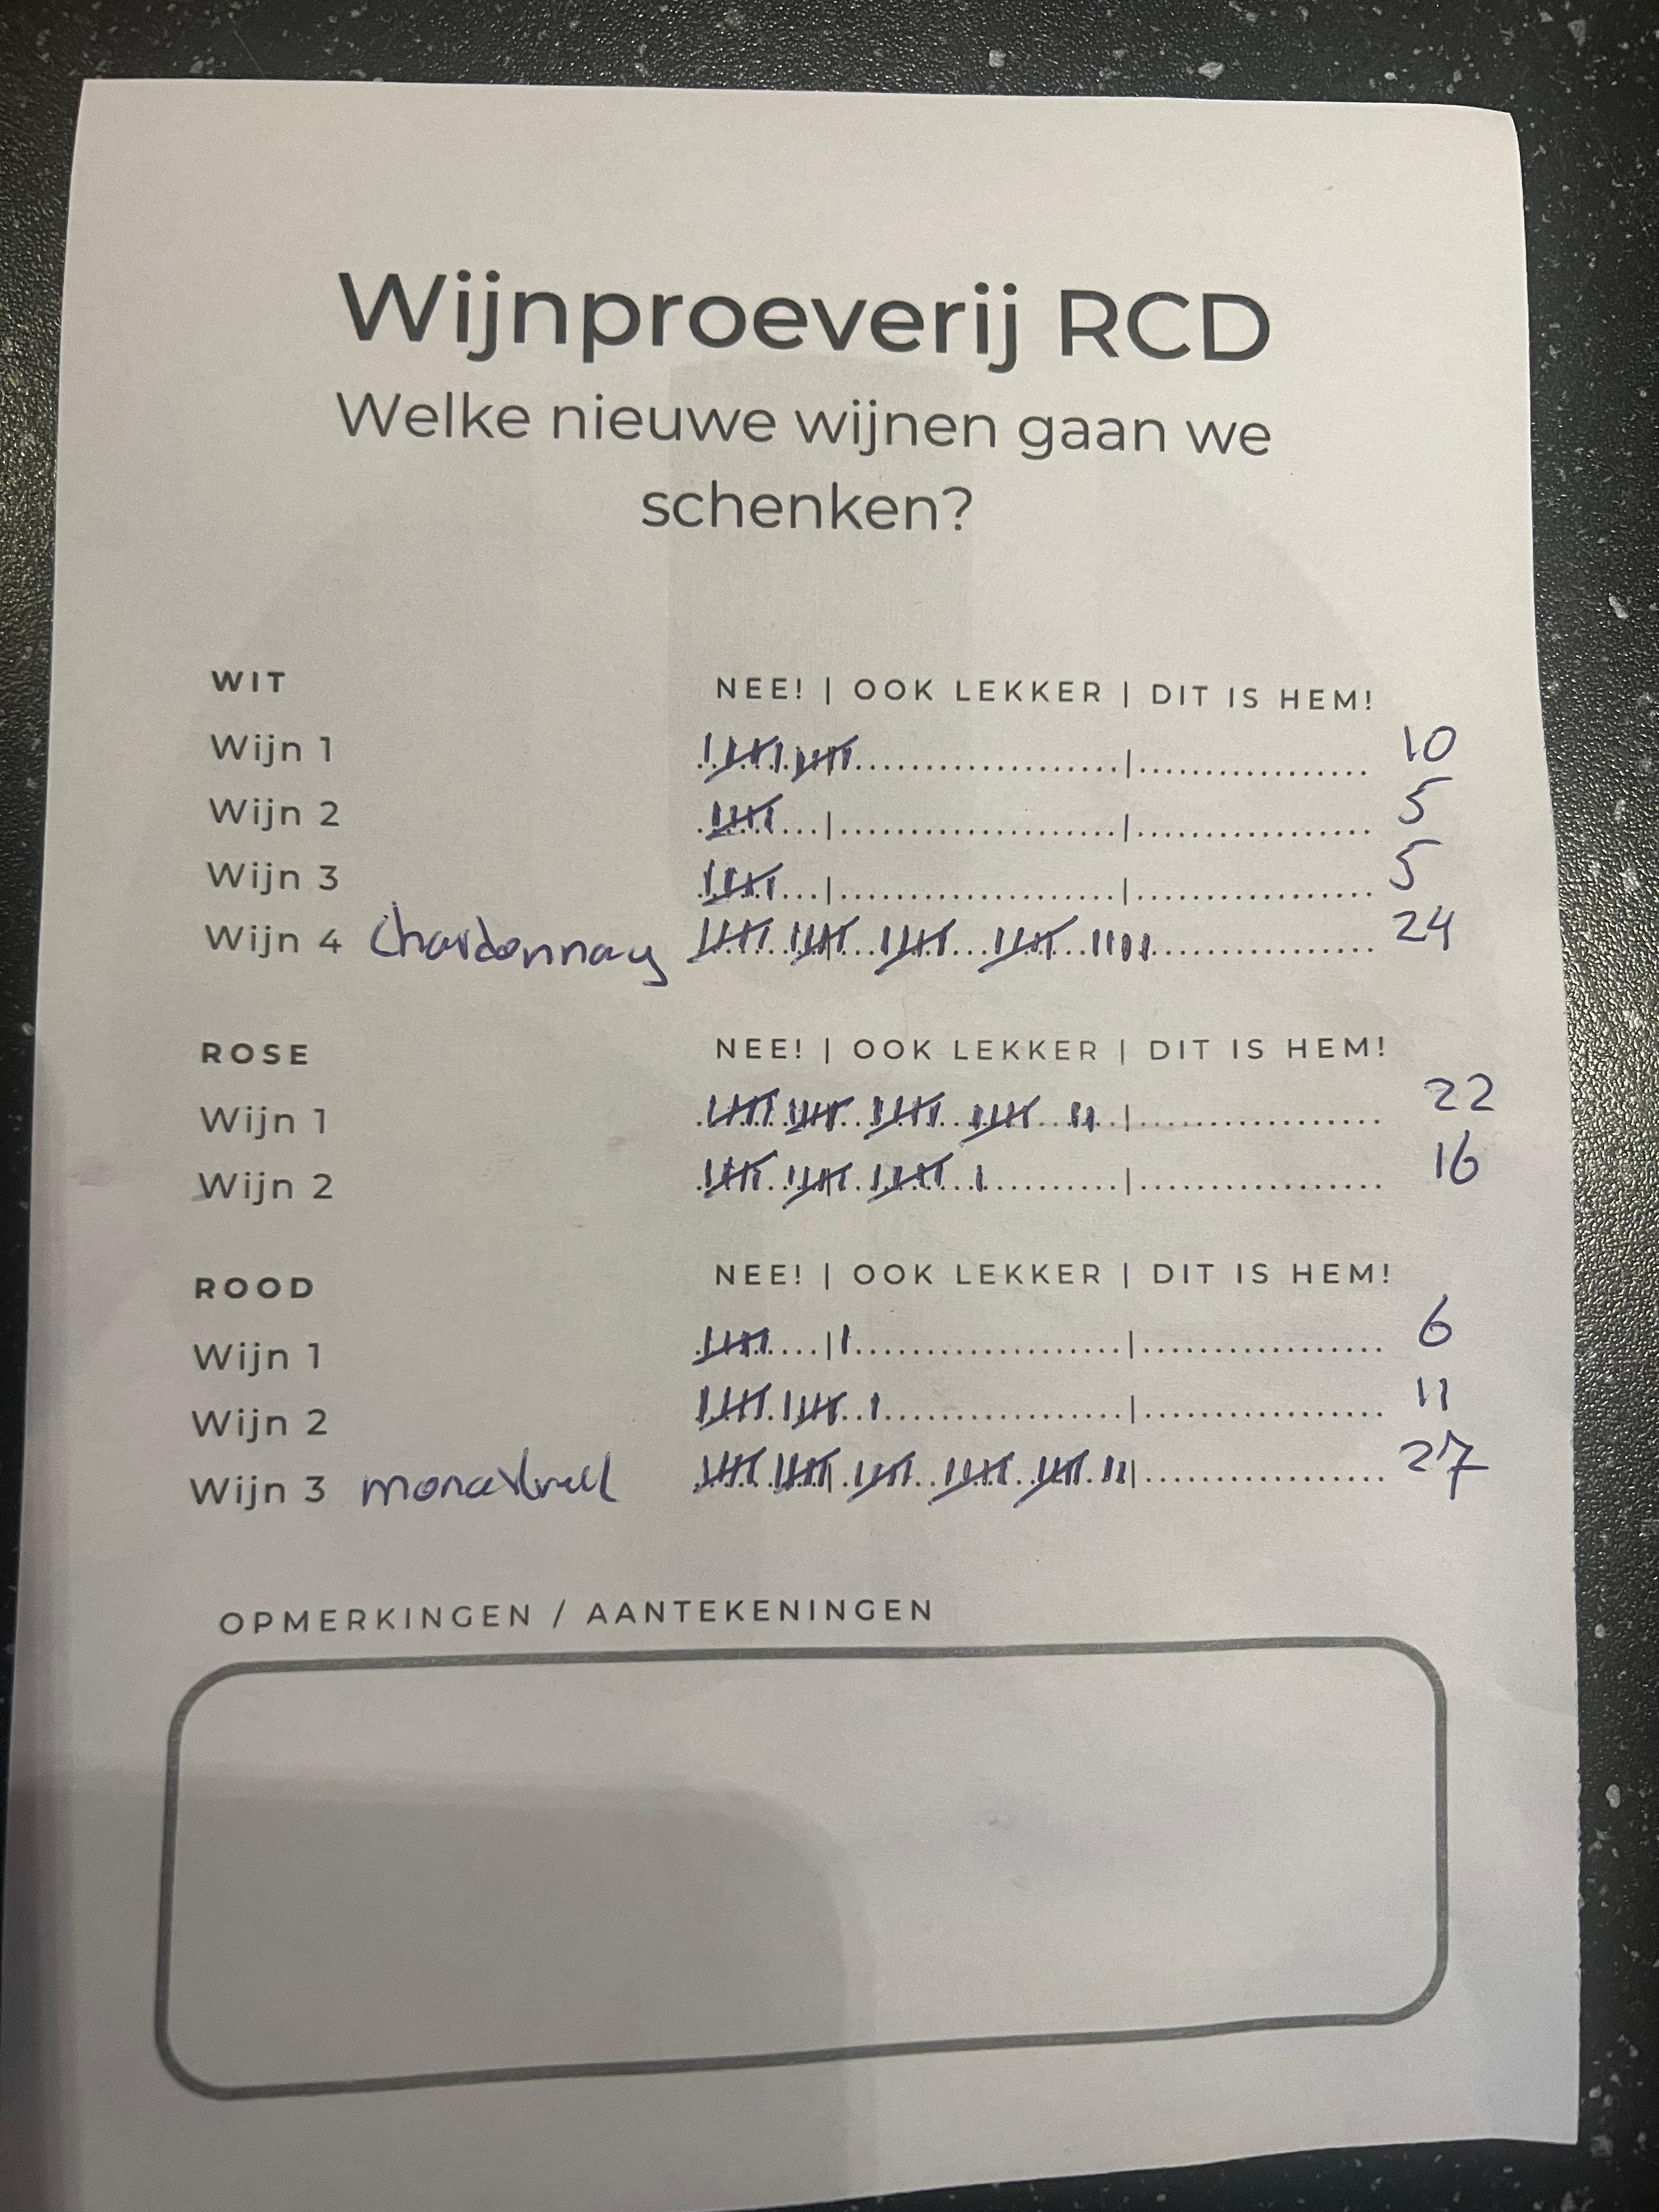 Wijnproeverij RCD
Welke nieuwe wijnen gaan we
schenken?
WIT NEE! | OOK LEKKER | DIT IS HEM!
Wijn 1 10
Wijn 2 5
Wijn 3 5
Wijn 4 Chardonnay 24
ROSE NEE! | OOK LEKKER | DIT IS HEM!
Wijn 1 22
Wijn 2 16
ROOD NEE! | OOK LEKKER | DIT IS HEM!
Wijn 1 6
Wijn 2 11
Wijn 3 monastrell 27
OPMERKINGEN / AANTEKENINGEN